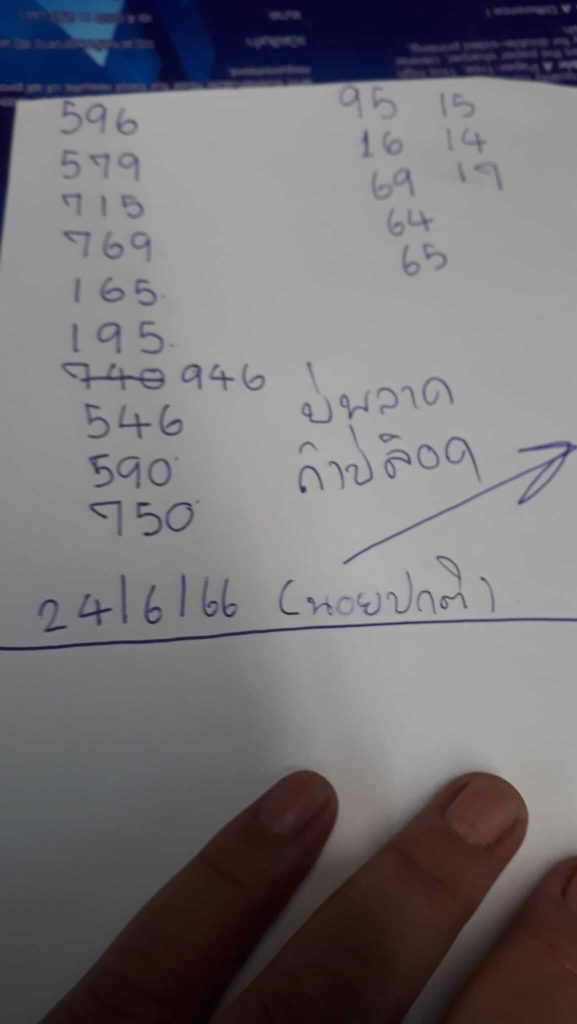 596
579
715
769
165
195
740 946
546
590
750
95 15
16 14
69 17
64
65
24/6/66 (นอยปกติ)